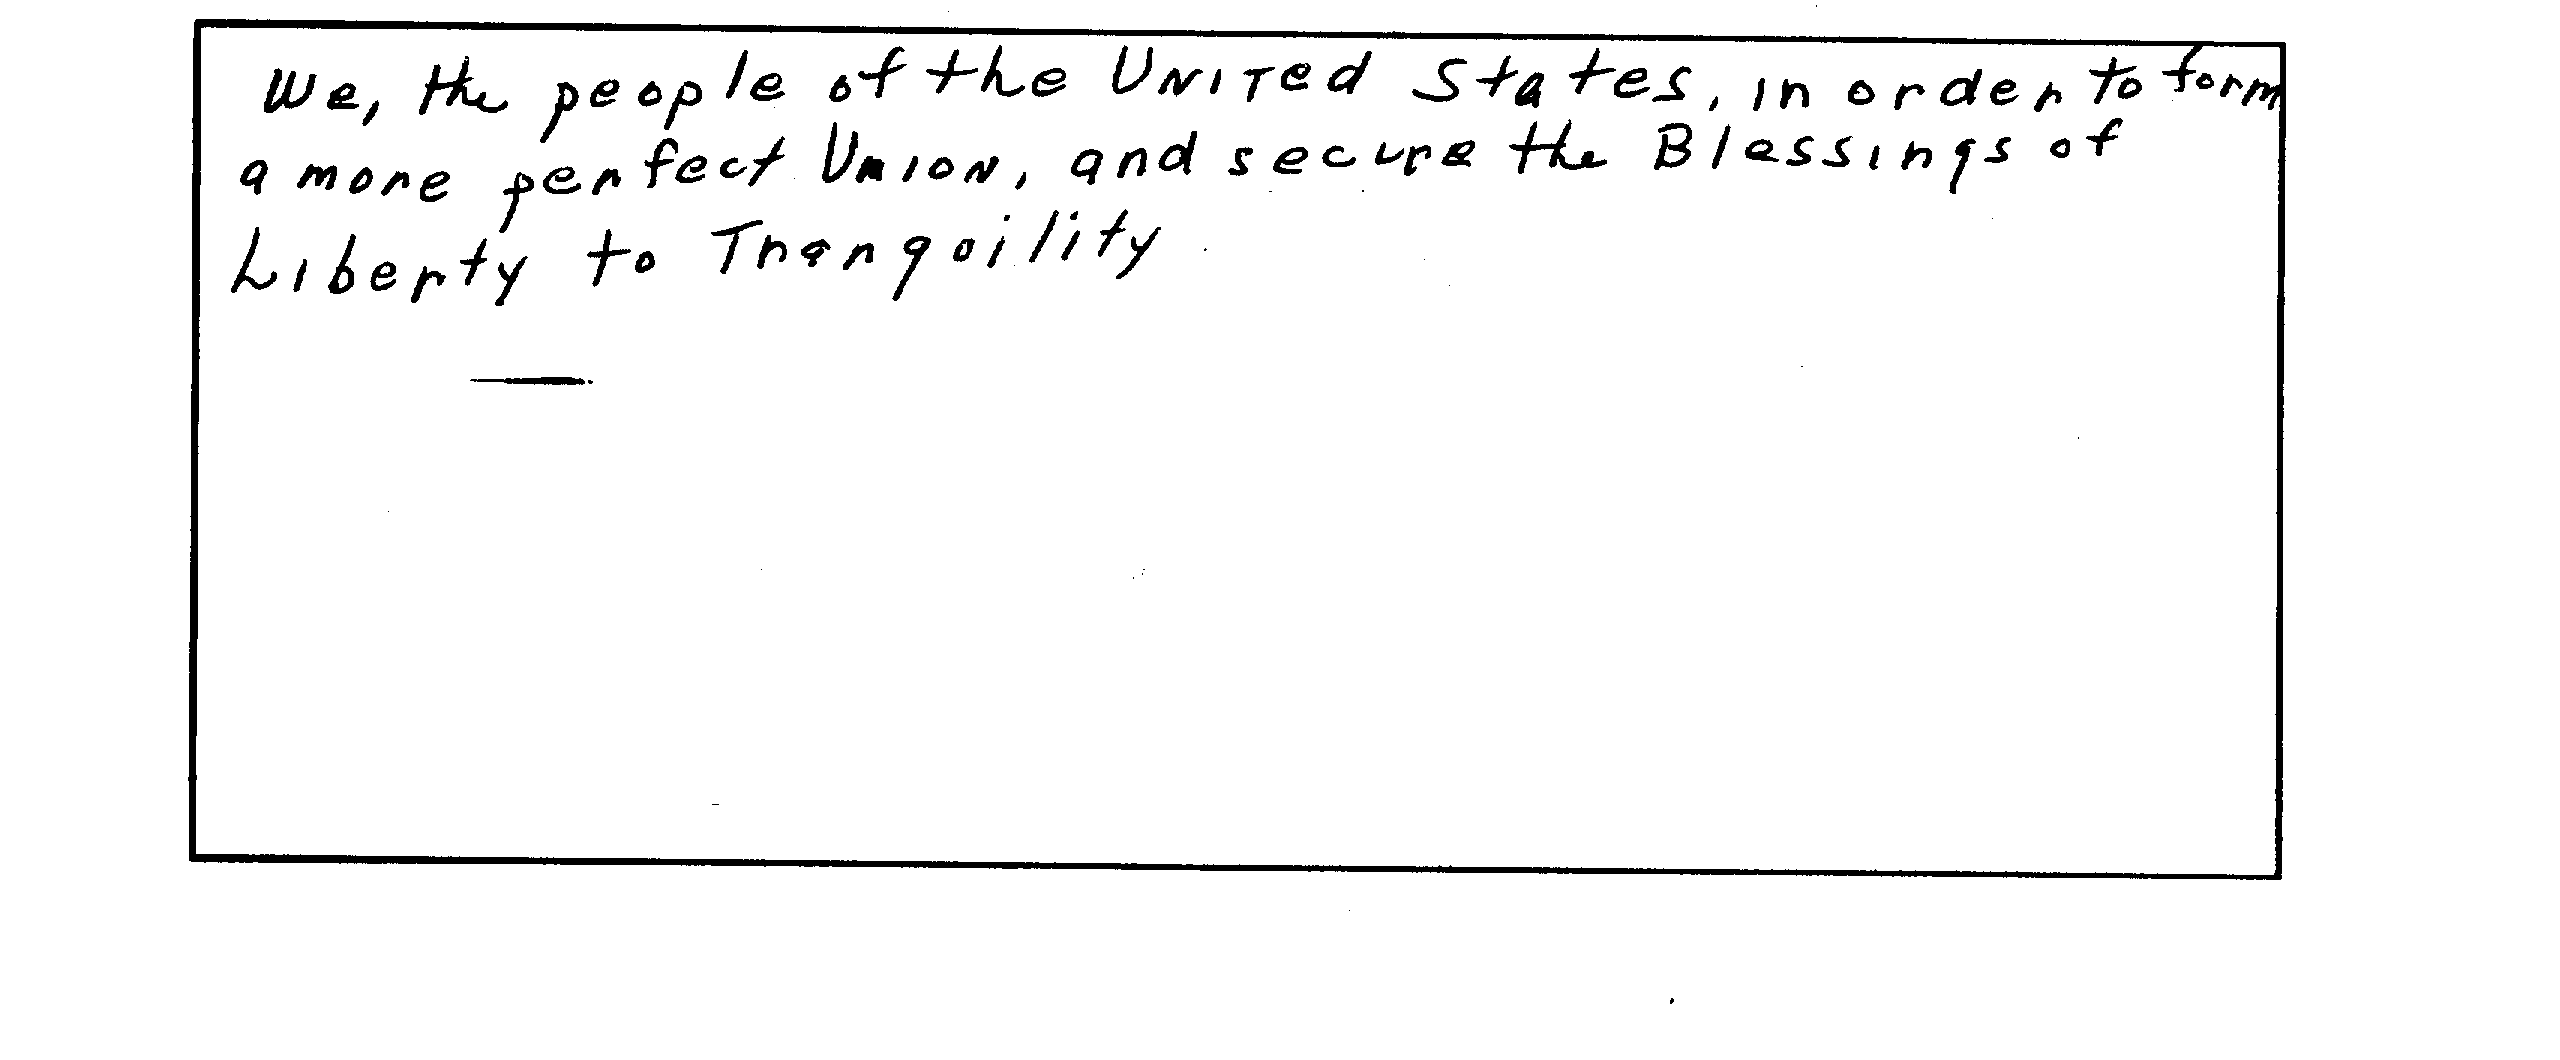 We, the people of the UNITed States, in order to form
a more perfect Union, and secure the Blessings of
Liberty to Tranqoility